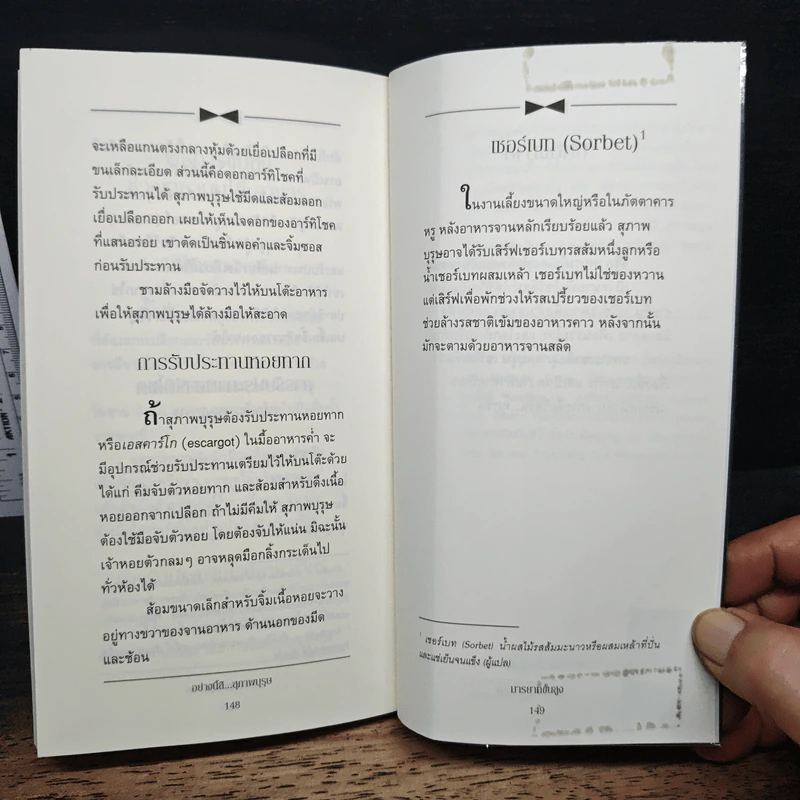 จะเหลือแกนตรงกลางหุ้มด้วยเยื่อเปลือกที่มี
ขนเล็กละเอียด ส่วนนี้คือดอกอาร์ทิโชคที่
รับประทานได้ สุภาพบุรุษใช้มีดและส้อมลอก
เยื่อเปลือกออก เผยให้เห็นใจดอกของอาร์ทิโชค
ที่แสนอร่อย เขาตัดเป็นชิ้นพอคำและจิ้มซอส
ก่อนรับประทาน
ชามล้างมือจัดวางไว้ให้บนโต๊ะอาหาร
เพื่อให้สุภาพบุรุษได้ล้างมือให้สะอาด
การรับประทานหอยทาก
ถ้าสุภาพบุรุษต้องรับประทานหอยทาก
หรือเอสคาร์โก (escargot) ในมื้ออาหารค่ำ จะ
มีอุปกรณ์ช่วยรับประทานเตรียมไว้ให้บนโต๊ะด้วย
ได้แก่ คีมจับตัวหอยทาก และส้อมสำหรับดึงเนื้อ
หอยออกจากเปลือก ถ้าไม่มีคีมให้ สุภาพบุรุษ
ต้องใช้มือจับตัวหอย โดยต้องจับให้แน่น มิฉะนั้น
เจ้าหอยตัวกลมๆ อาจหลุดมือกลิ้งกระเด็นไป
ทั่วห้องได้
ส้อมขนาดเล็กสำหรับจิ้มเนื้อหอยจะวาง
อยู่ทางขวาของจานอาหาร ด้านนอกของมีด
และช้อน
อย่างนี้สิ...สุภาพบุรุษ
148
เชอร์เบท (Sorbet)1
ในงานเลี้ยงขนาดใหญ่หรือในภัตตาคาร
หรู หลังอาหารจานหลักเรียบร้อยแล้ว สุภาพ
บุรุษอาจได้รับเสิร์ฟเชอร์เบทรสส้มหนึ่งลูกหรือ
น้ำเชอร์เบทผสมเหล้า เชอร์เบทไม่ใช่ของหวาน
แต่เสิร์ฟเพื่อพักช่วงให้รสเปรี้ยวของเชอร์เบท
ช่วยล้างรสชาติเข้มของอาหารคาว หลังจากนั้น
มักจะตามด้วยอาหารจานสลัด
1 เชอร์เบท (Sorbet) น้ำผลไม้รสส้มมะนาวหรือผสมเหล้าที่ปั่น
และแช่เย็นจนแข็ง (ผู้แปล)
มารยาทชั้นสูง
149